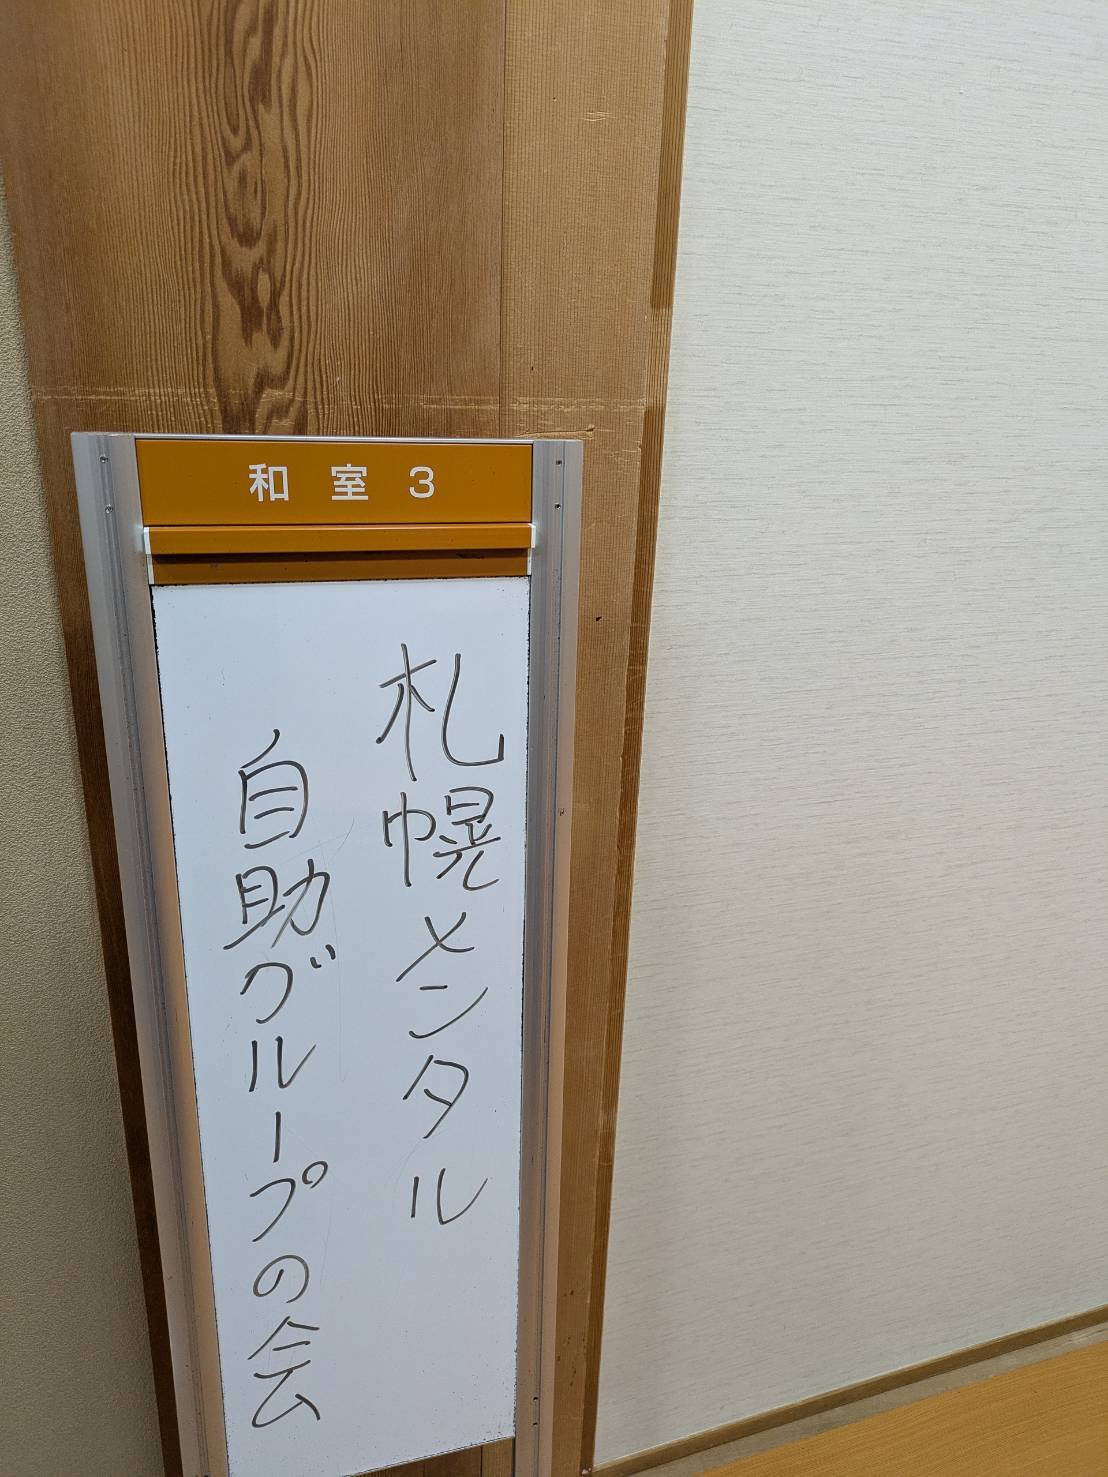 和室3
札幌メンタル
自助グループの会